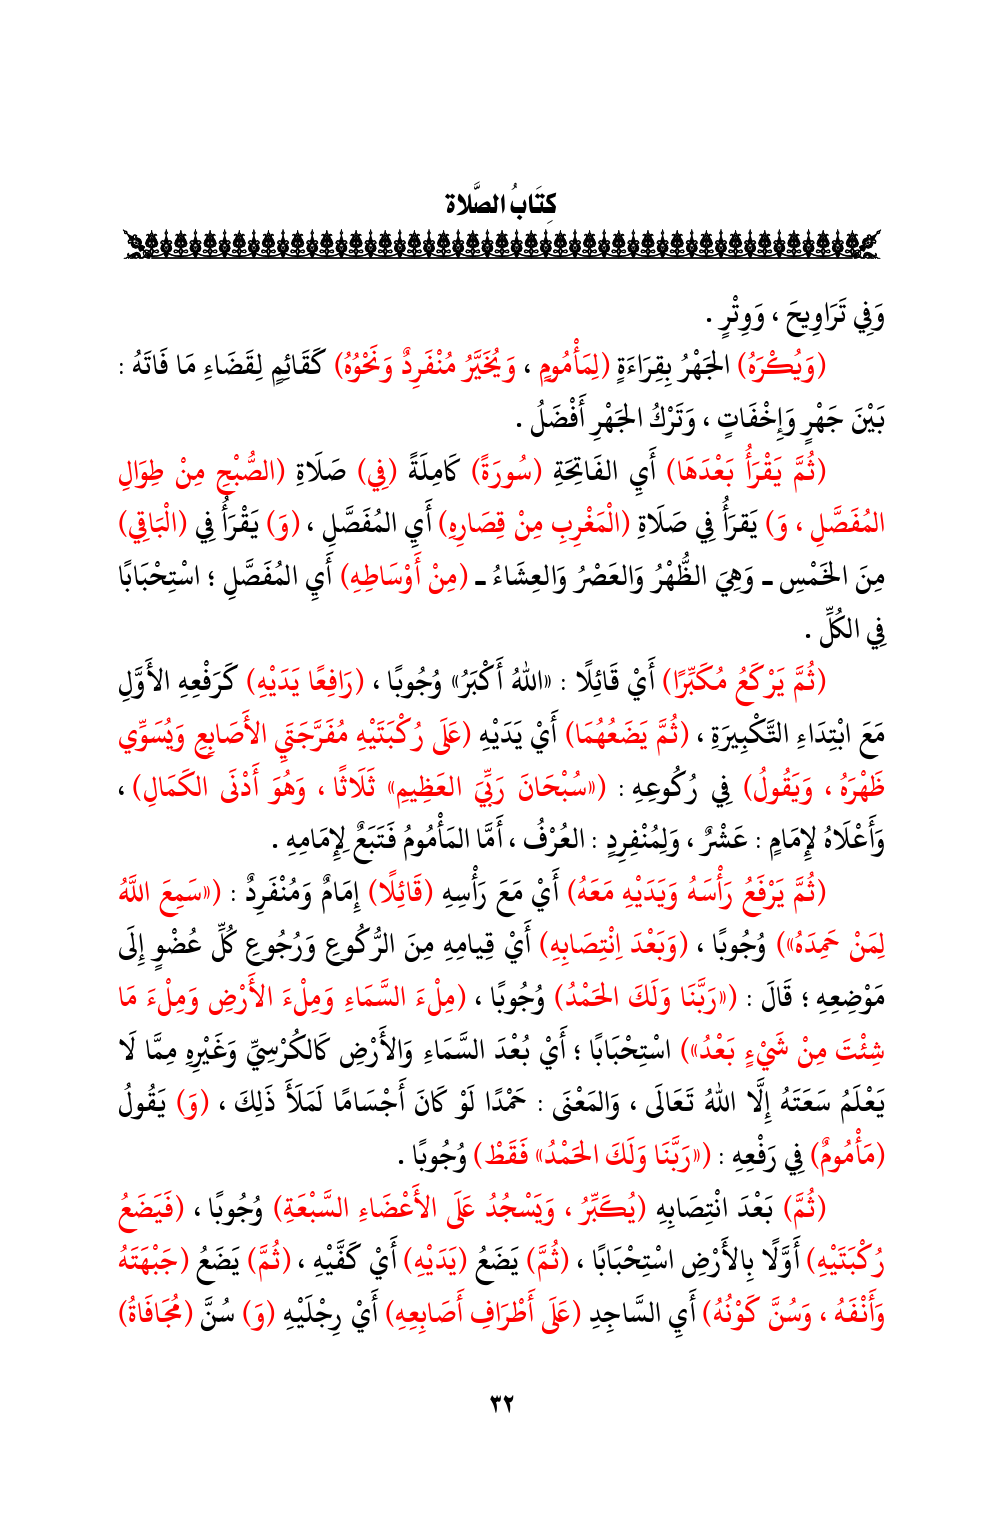 كِتَابُ الصَّلاة
وَفِي تَرَاوِيحَ ، وَوِتْرٍ .
(وَيُكْرَهُ) الجَهْرُ بِقِرَاءَةٍ (لِمَأْمُومٍ ، وَيُخَيَّرُ مُنْفَرِدٌ وَنَحْوُهُ) كَقَائِمٍ لِقَضَاءِ مَا فَاتَهُ :
بَيْنَ جَهْرٍ وَإِخْفَاتٍ ، وَتَرْكُ الجَهْرِ أَفْضَلُ .
(ثُمَّ يَقْرَأُ بَعْدَهَا) أَيِ الفَاتِحَةِ (سُورَةً) كَامِلَةً (فِي) صَلَاةِ (الصُّبْحِ مِنْ طِوَالِ
المُفَصَّلِ ، وَ) يَقرَأُ فِي صَلَاةِ (الْمَغْرِبِ مِنْ قِصَارِهِ) أَيِ المُفَصَّلِ ، (وَ) يَقْرَأُ فِي (الْبَاقِي)
مِنَ الخَمْسِ ـ وَهِيَ الظُّهْرُ وَالعَصْرُ وَالعِشَاءُ ـ (مِنْ أَوْسَاطِهِ) أَيِ المُفَصَّلِ ؛ اسْتِحْبَابًا
فِي الكُلِّ .
(ثُمَّ يَرْكَعُ مُكَبِّرًا) أَيْ قَائِلًا : «اللهُ أَكْبَرُ» وُجُوبًا ، (رَافِعًا يَدَيْهِ) كَرَفْعِهِ الأَوَّلِ
مَعَ ابْتِدَاءِ التَّكْبِيرَةِ ، (ثُمَّ يَضَعُهُمَا) أَيْ يَدَيْهِ (عَلَى رُكْبَتَيْهِ مُفَرَّجَتَيِ الأَصَابِعِ وَيُسَوِّي
ظَهْرَهُ ، وَيَقُولُ) فِي رُكُوعِهِ : («سُبْحَانَ رَبِّيَ العَظِيمِ» ثَلَاثًا ، وَهُوَ أَدْنَى الكَمَالِ) ،
وَأَعْلَاهُ لإِمَامٍ : عَشْرٌ ، وَلِمُنْفِرِدٍ : العُرْفُ ، أَمَّا المَأْمُومُ فَتَبَعٌ لِإِمَامِهِ .
(ثُمَّ يَرْفَعُ رَأْسَهُ وَيَدَيْهِ مَعَهُ) أَيْ مَعَ رَأْسِهِ (قَائِلًا) إِمَامٌ وَمُنْفَرِدٌ : («سَمِعَ اللَّهُ
لِمَنْ حَمِدَهُ») وُجُوبًا ، (وَبَعْدَ اِنْتِصَابِهِ) أَيْ قِيامِهِ مِنَ الرُّكُوعِ وَرُجُوعِ كُلِّ عُضْوٍ إِلَى
مَوْضِعِهِ ؛ قَالَ : («رَبَّنَا وَلَكَ الحَمْدُ) وُجُوبًا ، (مِلْءَ السَّمَاءِ وَمِلْءَ الأَرْضِ وَمِلْءَ مَا
شِئْتَ مِنْ شَيْءٍ بَعْدُ») اسْتِحْبَابًا ؛ أَيْ بُعْدَ السَّمَاءِ وَالأَرْضِ كَالكُرْسِيِّ وَغَيْرِهِ مِمَّا لَا
يَعْلَمُ سَعَتَهُ إِلَّا اللهُ تَعَالَى ، وَالمَعْنَى : حَمْدًا لَوْ كَانَ أَجْسَامًا لَمَلَأَ ذَلِكَ ، (وَ) يَقُولُ
(مَأْمُومٌ) فِي رَفْعِهِ : («رَبَّنَا وَلَكَ الحَمْدُ» فَقَطْ) وُجُوبًا .
(ثُمَّ) بَعْدَ انْتِصَابِهِ (يُكَبِّرُ ، وَيَسْجُدُ عَلَى الأَعْضَاءِ السَّبْعَةِ) وُجُوبًا ، (فَيَضَعُ
رُكْبَتَيْهِ) أَوَّلًا بِالأَرْضِ اسْتِحْبَابًا ، (ثُمَّ) يَضَعُ (يَدَيْهِ) أَيْ كَفَّيْهِ ، (ثُمَّ) يَضَعُ (جَبْهَتَهُ
وَأَنْفَهُ ، وَسُنَّ كَوْنُهُ) أَيِ السَّاجِدِ (عَلَى أَطْرَافِ أَصَابِعِهِ) أَيْ رِجْلَيْهِ (وَ) سُنَّ (مُجَافَاةُ)
٣٢